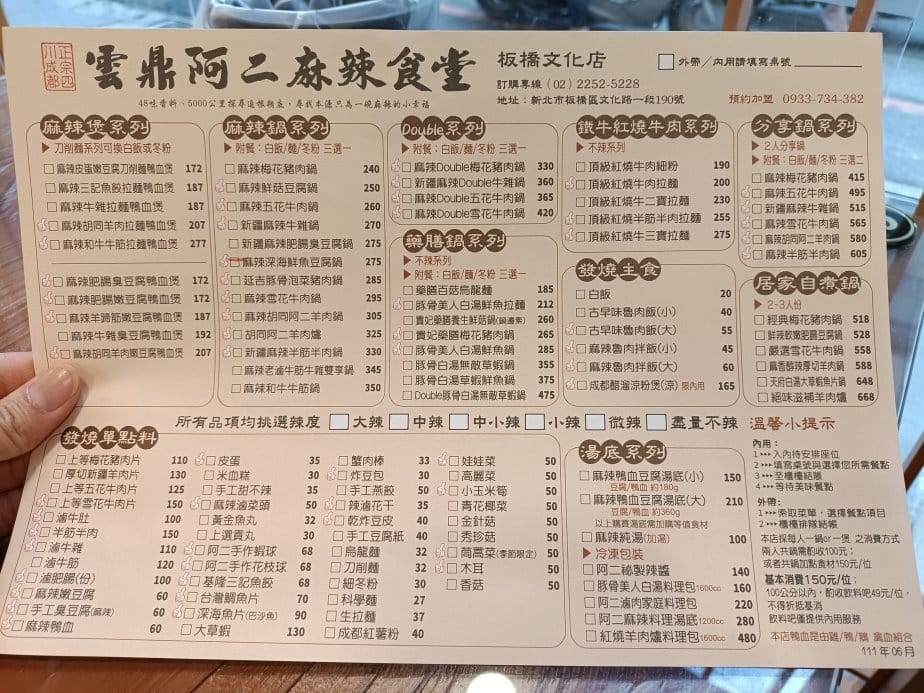 正宗四川成都
雲鼎阿二麻辣食堂
48味香料、5000公里探尋追根翻盒，尋找本源只為一碗麻辣的小幸福
板橋文化店
□外帶／內用請填寫桌號
訂購專線（02）2252-5228
地址：新北市板橋區文化路一段190號
預約加盟 0933-734-382
麻辣煲系列
▶刀削麵系列可換白飯或冬粉
□麻辣皮蛋嫩豆腐刀削麵鴨血煲 172
□麻辣三記魚餃拉麵鴨血煲 187
□麻辣牛雜拉麵鴨血煲 187
□麻辣胡同羊肉拉麵鴨血煲 207
□麻辣和牛牛筋拉麵鴨血煲 277
□麻辣肥腸臭豆腐鴨血煲 172
□麻辣肥腸嫩豆腐鴨血煲 172
□麻辣羊蹄筋嫩豆腐鴨血煲 187
□麻辣牛雜臭豆腐鴨血煲 192
□麻辣胡同羊肉嫩豆腐鴨血煲 207
麻辣鍋系列
▶附餐：白飯/麵/冬粉 三選一
□麻辣梅花豬肉鍋 240
□麻辣鮮菇豆腐鍋 250
□麻辣五花牛肉鍋 260
□新疆麻辣牛雜鍋 270
□新疆麻辣肥腸臭豆腐鍋 275
□麻辣深海鮮魚豆腐鍋 275
□延吉豚骨泡菜豬肉鍋 285
□麻辣雪花牛肉鍋 295
□麻辣胡同阿二羊肉鍋 305
□胡同阿二羊肉爐 325
□新疆麻辣半筋半肉鍋 330
□麻辣老滷牛筋牛雜雙享鍋 345
□麻辣和牛牛筋鍋 350
Double系列
▶附餐：白飯/麵/冬粉 三選一
□麻辣Double梅花豬肉鍋 330
□新疆麻辣Double牛雜鍋 360
□麻辣Double五花牛肉鍋 365
□麻辣Double雪花牛肉鍋 420
藥膳鍋系列
▶不辣系列
▶附餐：白飯/麵/冬粉 三選一
□藥膳百菇烏龍麵 185
□豚骨美人白湯鮮魚拉麵 212
□貴妃藥膳養生鮮菇鍋（鍋邊素） 260
□貴妃藥膳梅花豬肉鍋 265
□豚骨美人白湯鮮魚鍋 285
□豚骨白湯無敵草蝦鍋 355
□豚骨白湯草蝦鮮魚鍋 375
□Double豚骨白湯無敵草蝦鍋 475
鐵牛紅燒牛肉系列
▶不辣系列
□頂級紅燒牛肉細粉 190
□頂級紅燒牛肉拉麵 200
□頂級紅燒牛二寶拉麵 230
□頂級紅燒半筋半肉拉麵 255
□頂級紅燒牛三寶拉麵 275
發燒主食
□白飯 20
□古早味魯肉飯(小) 40
□古早味魯肉飯(大) 55
□麻辣魯肉拌飯(小) 45
□麻辣魯肉拌飯(大) 60
□成都醋溜涼粉煲(涼) 限內用 165
分享鍋系列
▶2人分享鍋
▶附餐：白飯/麵/冬粉 三選二
□麻辣梅花豬肉鍋 415
□麻辣五花牛肉鍋 495
□新疆麻辣牛雜鍋 515
□麻辣雪花牛肉鍋 565
□麻辣胡同阿二羊肉鍋 580
□麻辣半筋半肉鍋 605
居家自煮鍋
▶2~3人份
□經典梅花豬肉鍋 518
□鮮辣軟嫩肥腸豆腐鍋 528
□嚴選雪花牛肉鍋 558
□麻香醇辣厚切羊肉鍋 588
□天府白湯大草蝦魚片鍋 648
□絕味滋補羊肉爐 668
所有品項均挑選辣度 □大辣 □中辣 □中小辣 □小辣 □微辣 □盡量不辣
發燒單點料
□上等梅花豬肉片 110
□厚切新疆羊肉片 130
□上等五花牛肉片 125
□上等雪花牛肉片 150
□滷牛肚 100
□半筋半肉 150
□滷牛雜 110
□滷牛筋 120
□滷肥腸(份) 100
□麻辣嫩豆腐 60
□手工臭豆腐(麻辣) 60
□麻辣鴨血 60
□皮蛋 35
□米血糕 30
□手工甜不辣 35
□麻辣滷菜頭 50
□黃金魚丸 32
□上選貢丸 30
□阿二手作蝦球 68
□阿二手作花枝球 68
□基隆三記魚餃 68
□台灣鯛魚片 70
□深海魚片(巴沙魚) 90
□大草蝦 130
□蟹肉棒 33
□炸豆包 30
□手工燕餃 50
□辣滷花干 35
□乾炸豆皮 40
□手工豆腐紙 40
□烏龍麵 32
□刀削麵 32
□細冬粉 30
□科學麵 27
□生拉麵 37
□成都紅薯粉 40
□娃娃菜 50
□高麗菜 50
□小玉米筍 50
□青花椰菜 50
□金針菇 50
□秀珍菇 50
□茼蒿菜(季節限定) 50
□木耳 50
□香菇 50
湯底系列
□麻辣鴨血豆腐湯底(小) 150
豆腐/鴨血 約180g
□麻辣鴨血豆腐湯底(大) 210
豆腐/鴨血 約360g
以上購買湯底需加購等值食材
□麻辣純湯(加湯) 100
▶冷凍包裝
□阿二秘製辣醬 140
□豚骨美人白湯料理包1600cc 160
□阿二滷肉家庭料理包 220
□阿二麻辣料理湯底1200cc 280
□紅燒羊肉爐料理包1600cc 480
溫馨小提示
內用：
1➤➤➤入內待安排座位
2➤➤➤填寫桌號與選擇您所需餐點
3➤➤➤至櫃檯結賬
4➤➤➤等待美味餐點
外帶：
1➤➤➤索取菜單，選擇餐點項目
2➤➤➤櫃檯排隊結帳
本店採每人一鍋or一煲 之消費方式
兩人共鍋需酌收100元；
或者共鍋加點食材150元/位。
基本消費150元/位：
100公分以內，酌收飲料吧49元/位，
不得折抵基消
飲料吧僅提供內用服務
本店鴨血是由雞/鴨/鵝 禽血組合
111 年 06 月